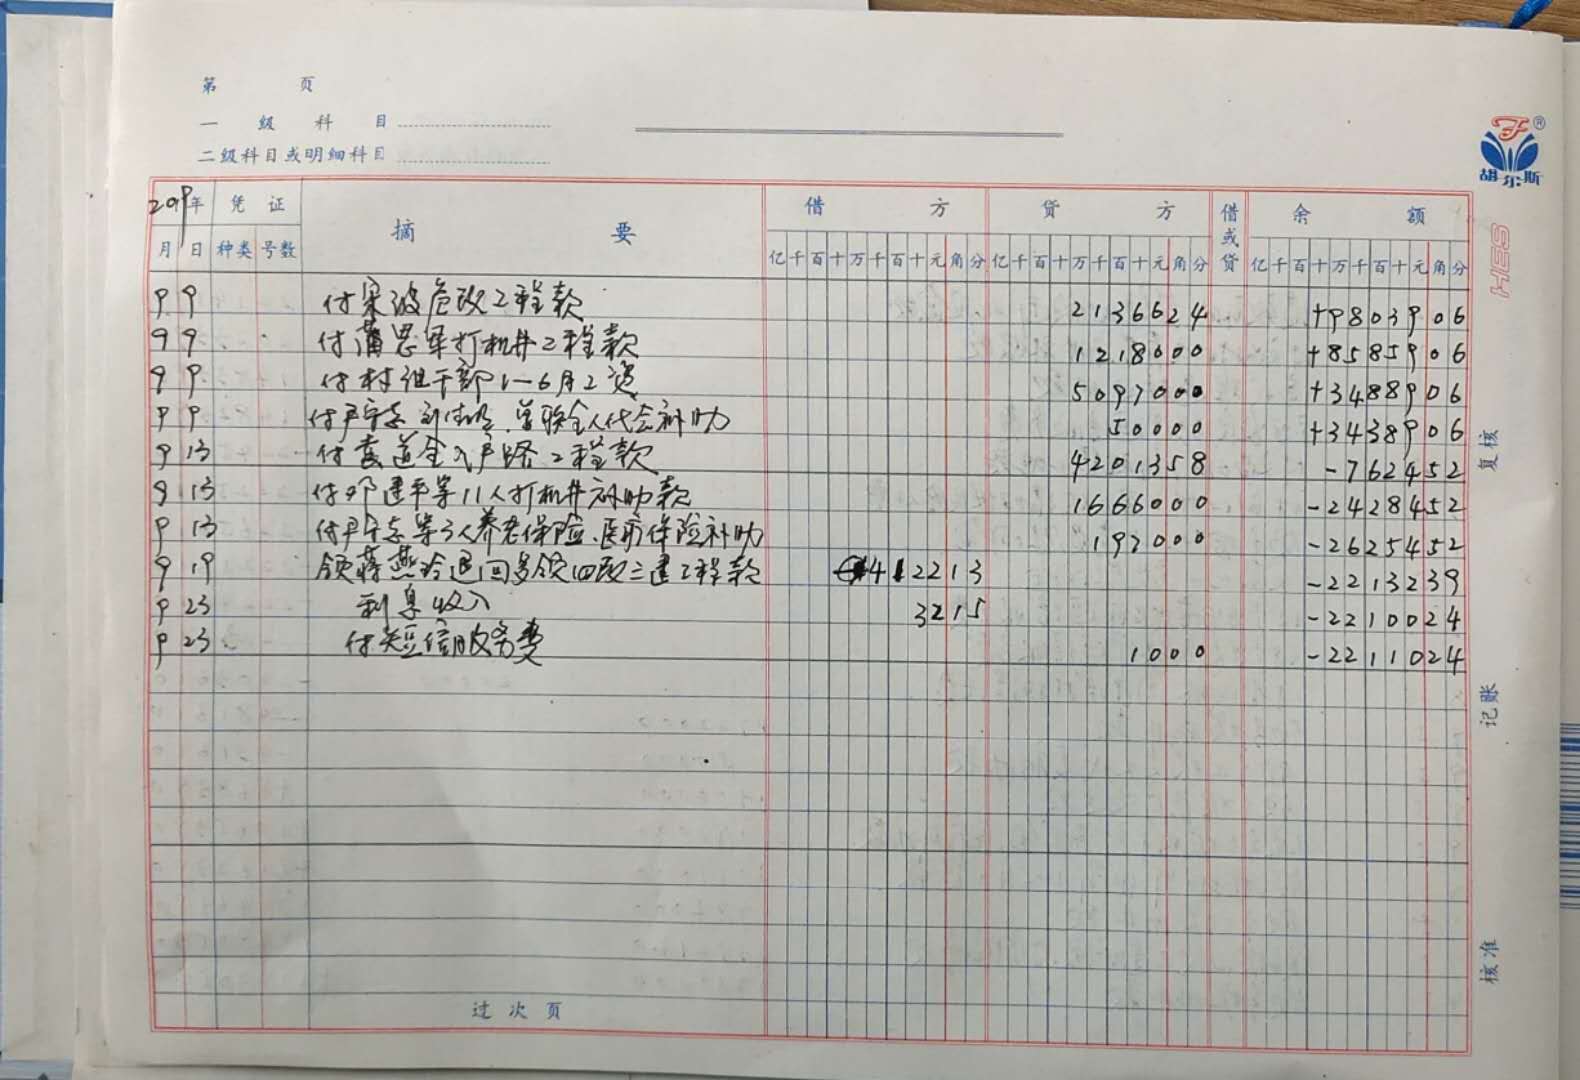 第 页
一 级 科 目
二级科目或明细科目
胡尔斯
HES
2019年 凭 证 摘 要 借 方 贷 方 借或贷 余 额
月 日 种类 号数 亿千百十万千百十元角分 亿千百十万千百十元角分 亿千百十万千百十元角分
9 9 付宋波危改工程款 2136624 +9803906
9 9 付蒲思军打机井工程款 1218000 +8585906
9 9 付村组干部1-6月工资 5097000 +3488906
9 9 付尹守志、 人代会补助 50000 +3438906
9 13 付袁道全入户路工程款 4201358 -762452
9 13 付邓建平等11人打机井补助款 1666000 -2428452
9 13 付尹守志等3人养老保险、医疗保险补助 197000 -2625452
9 19 领蒋燕玲退回多领四改三建工程款 412213 -2213239
9 23 利息收入 3215 -2210024
9 23 付短信服务费 1000 -2211024
过 次 页
复核
记账
核准